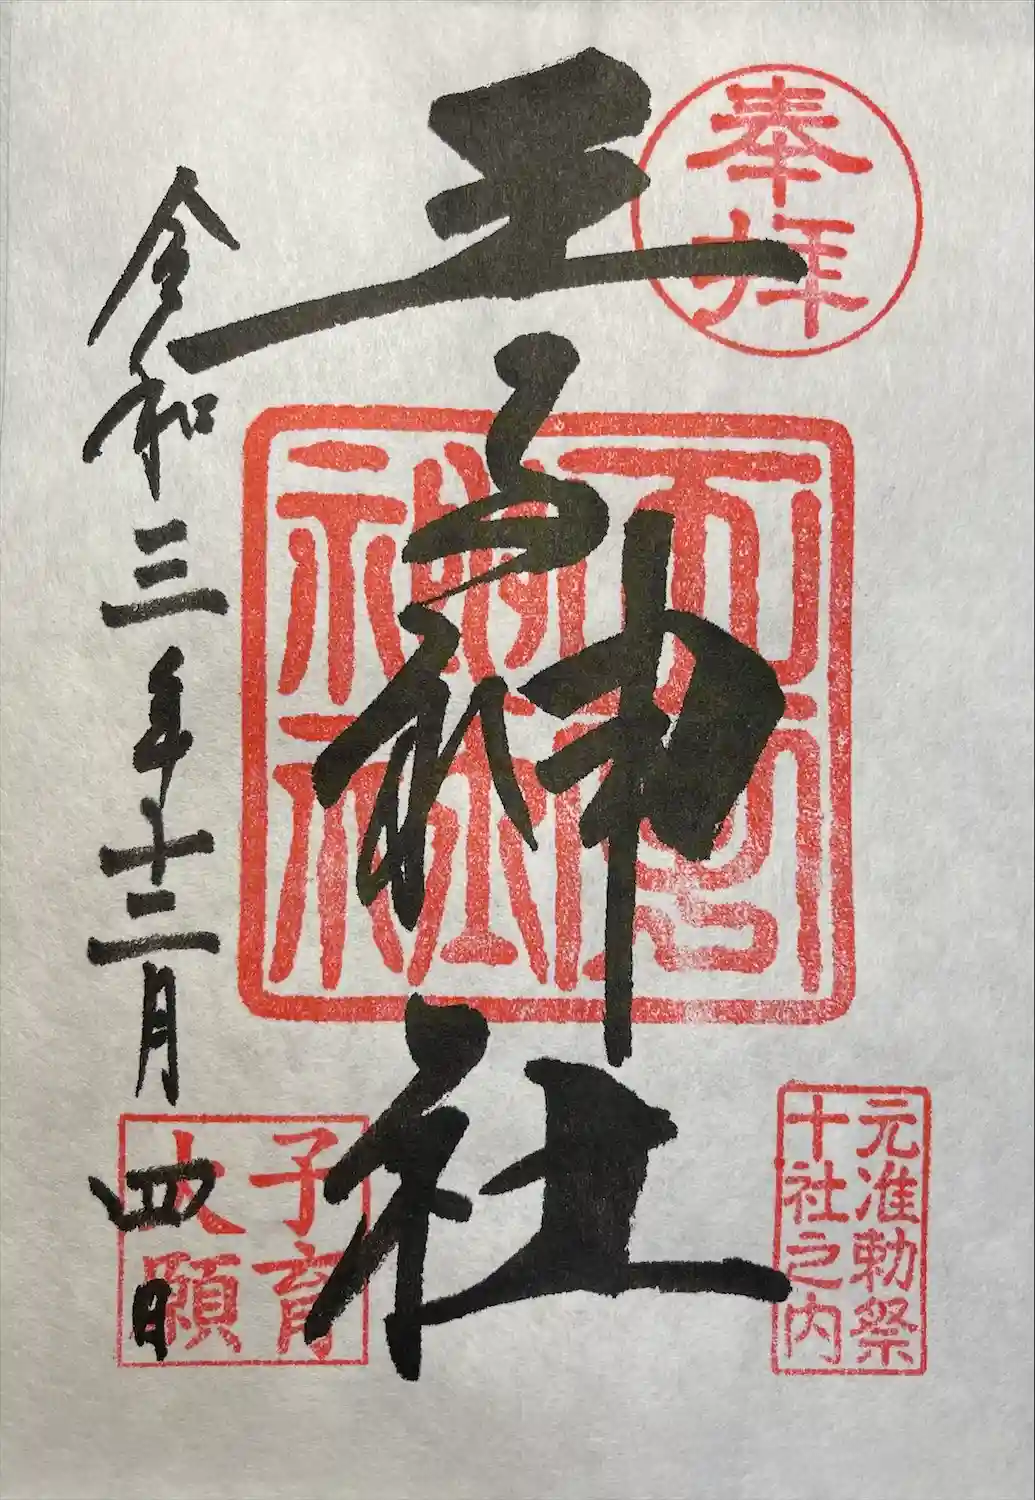 奉拝
元准勅祭
十社之内
王子神社
王子神社
子育
大願
令和三年十二月四日